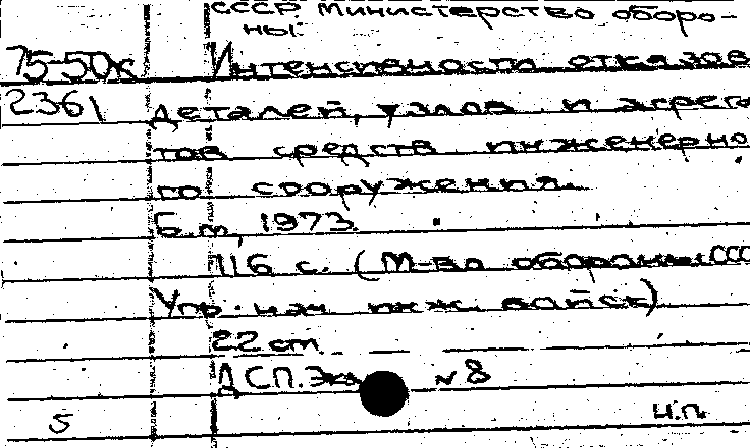 СССР. Министерство оборо-
ны.
75-50к Интенсивности отказов
2361 деталей, узлов и агрега
тов средств инженерно
го сооружения.
Б.м., 1973.
116 с. (М-во обороны СССР
Упр. нач. инж. войск)
22 см.
ДСП. Экз № 8
5 ч.п.